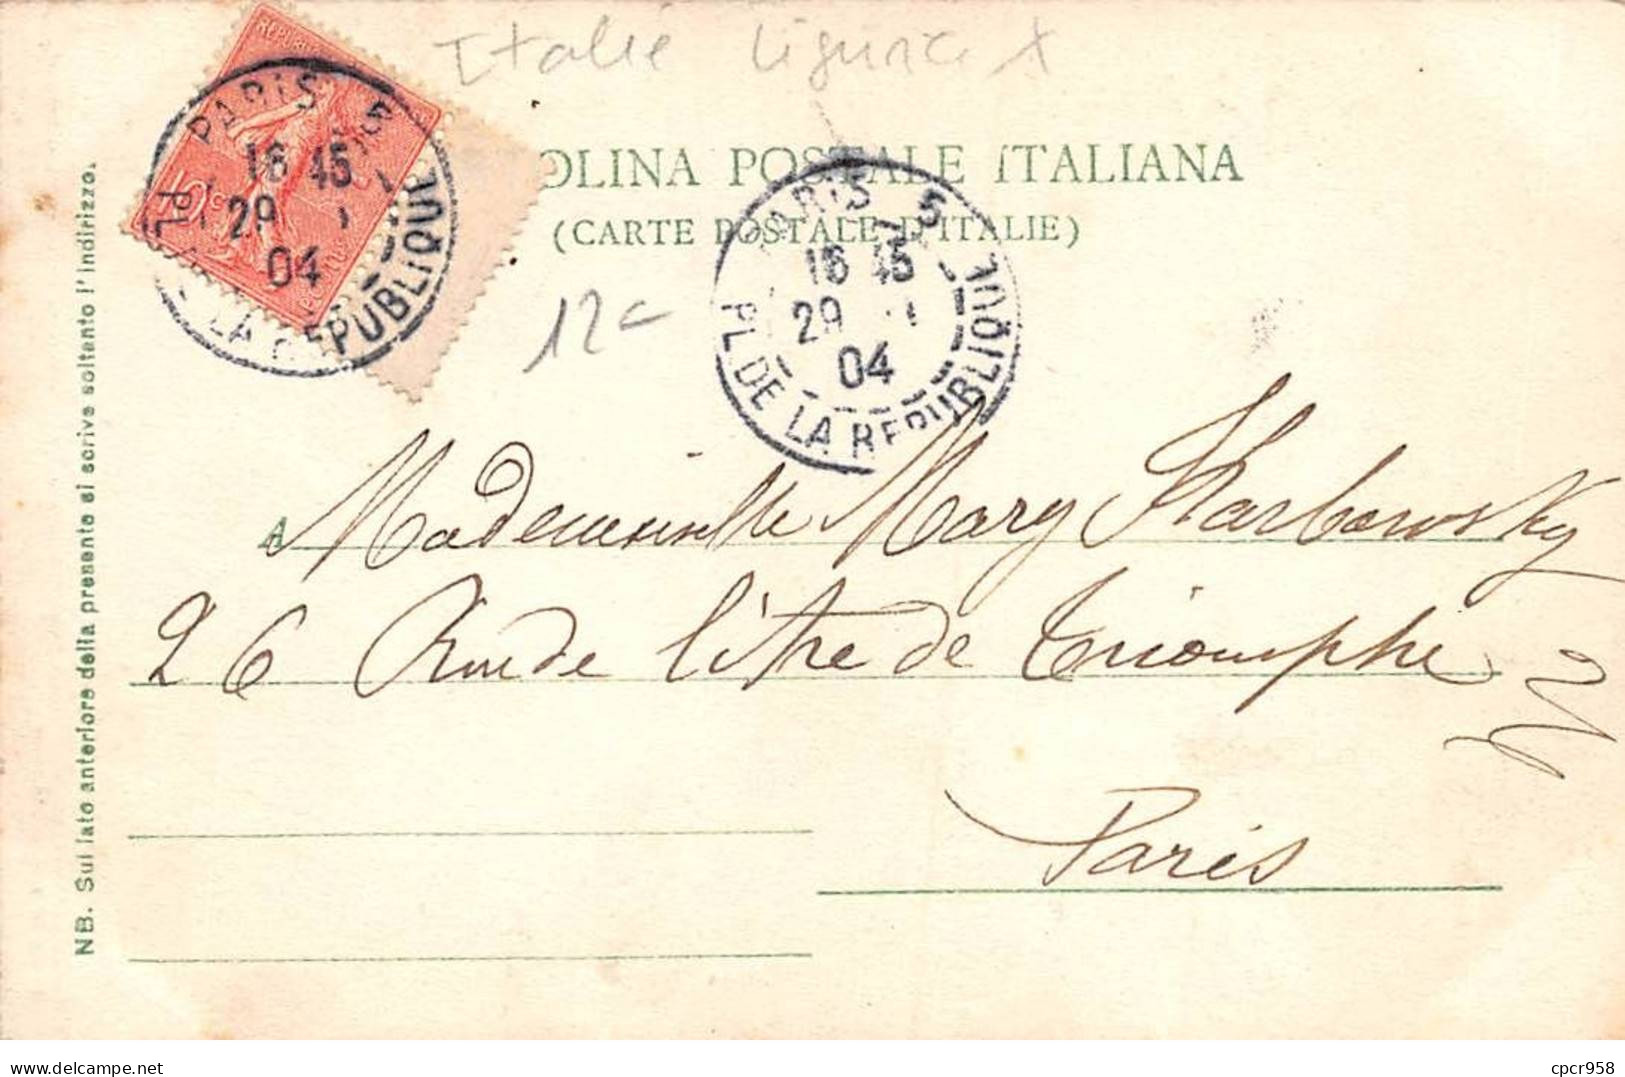 Italie Ligurie
CARTOLINA POSTALE ITALIANA
(CARTE POSTALE D'ITALIE)
PARIS 5
16 45
29
04
PL. DE LA REPUBLIQUE
PARIS 5
16 45
29
04
PL. DE LA REPUBLIQUE
12
A Mademoiselle Mary Karbowsky
26 Rue de l'itre de Triomphe
Paris
NB. Sul lato anteriore della presente si scrive soltanto l'indirizzo.
www.delcampe.net
cpcr958